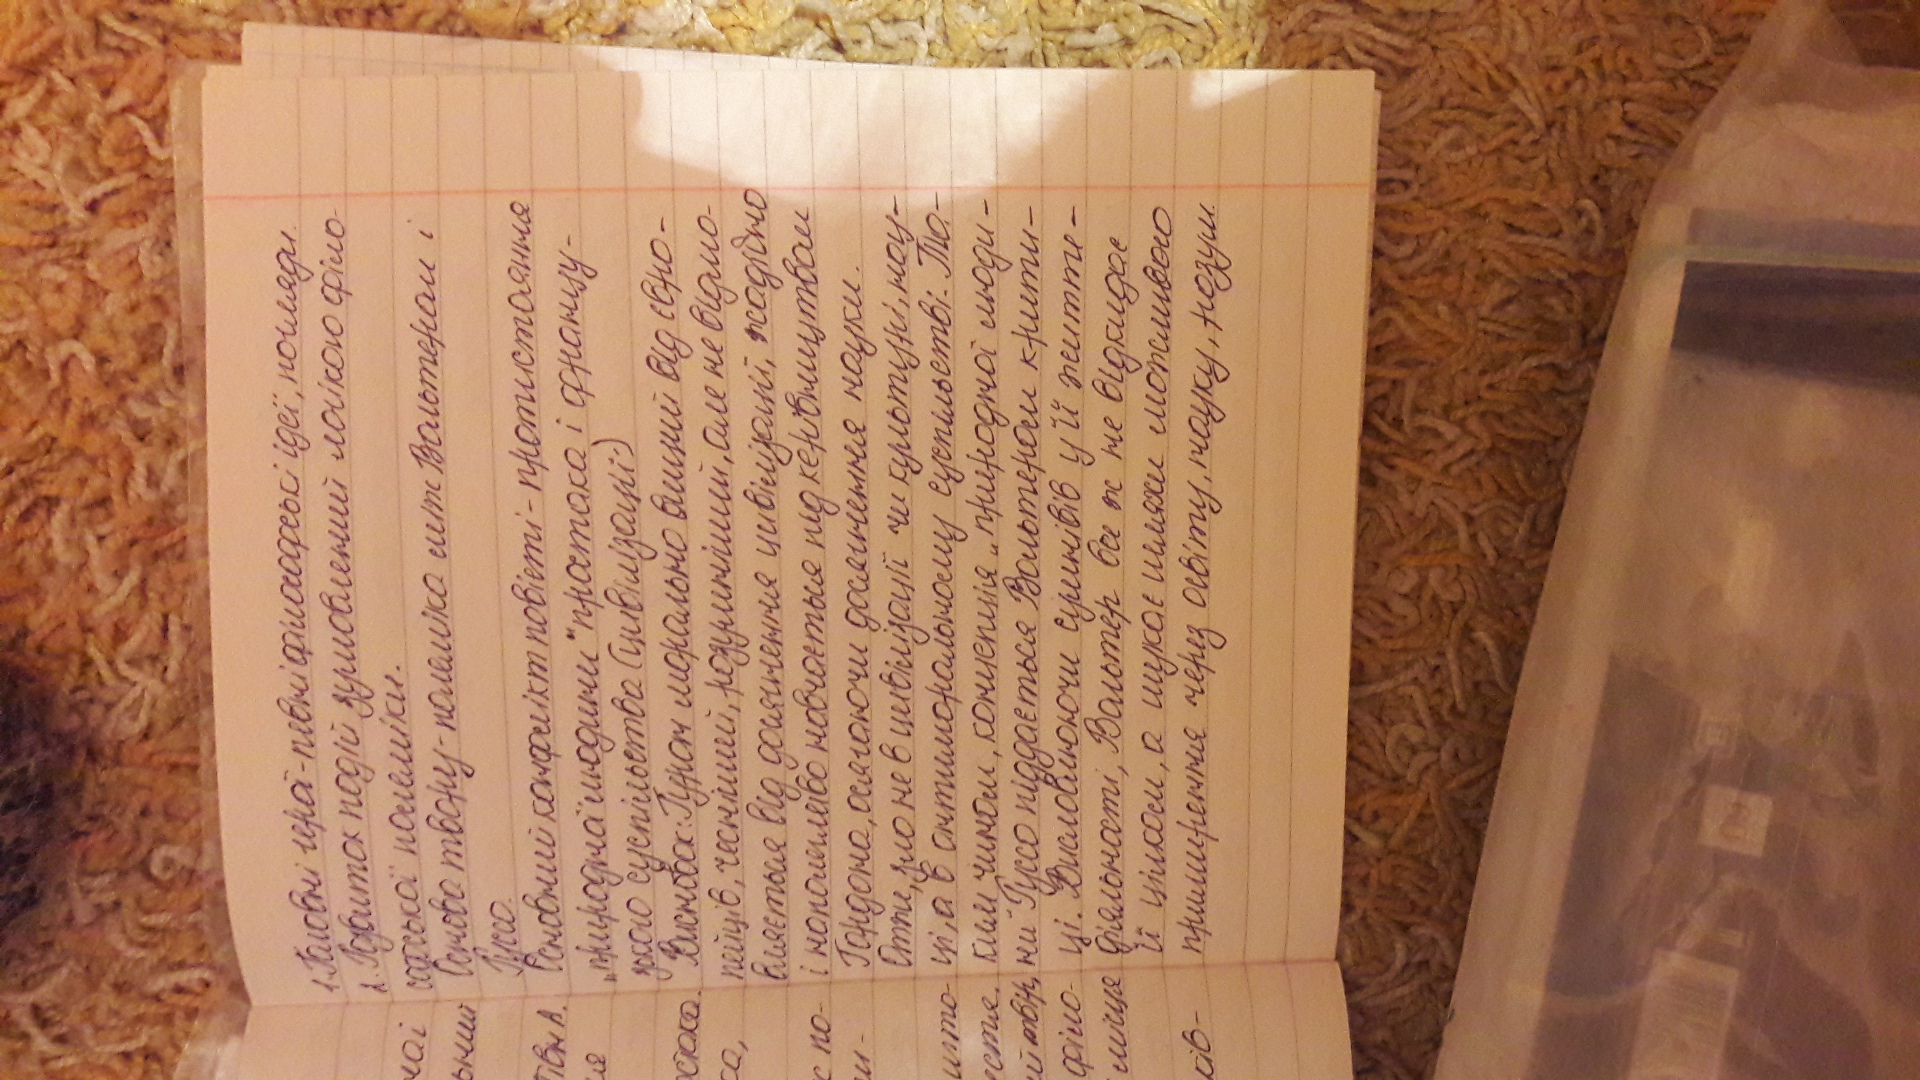 1. Головні герої - певні філософські ідеї, погляди.
2. Розвиток подій зумовлений логікою філо-
софської полеміки.
Основа твору - полеміка між Вольтером і
Руссо.
Основний конфлікт повісті - протистояння
„природної людини" простака і францу-
ського суспільства (цивілізації)
Висновок: Гурон морально вищий від євро-
пейців, чесніший, розумніший, але не відмо-
вляється від досягнення цивілізації, жадібно
і наполегливо навчається під керівництвом
Гордона, осягаючи досягнення науки.
Отже, зло не в цивілізації чи культурі, нау-
ці, а в антиморальному суспільстві. Та-
ким чином, концепція „природної люди-
ни" Руссо піддається Вольтером крити-
ці. Висловлюючи сумнівів у її життє-
діяльності, Вольтер все ж не відкидає
її цілком, а шукає шляхи можливого
примирення через освіту, науку, розум.
чаї
ьний
тівні А.
ся
ська.
са,
с по-
ш-
ито-
уєтся.
ий твір,
філо-
і місце
сів-